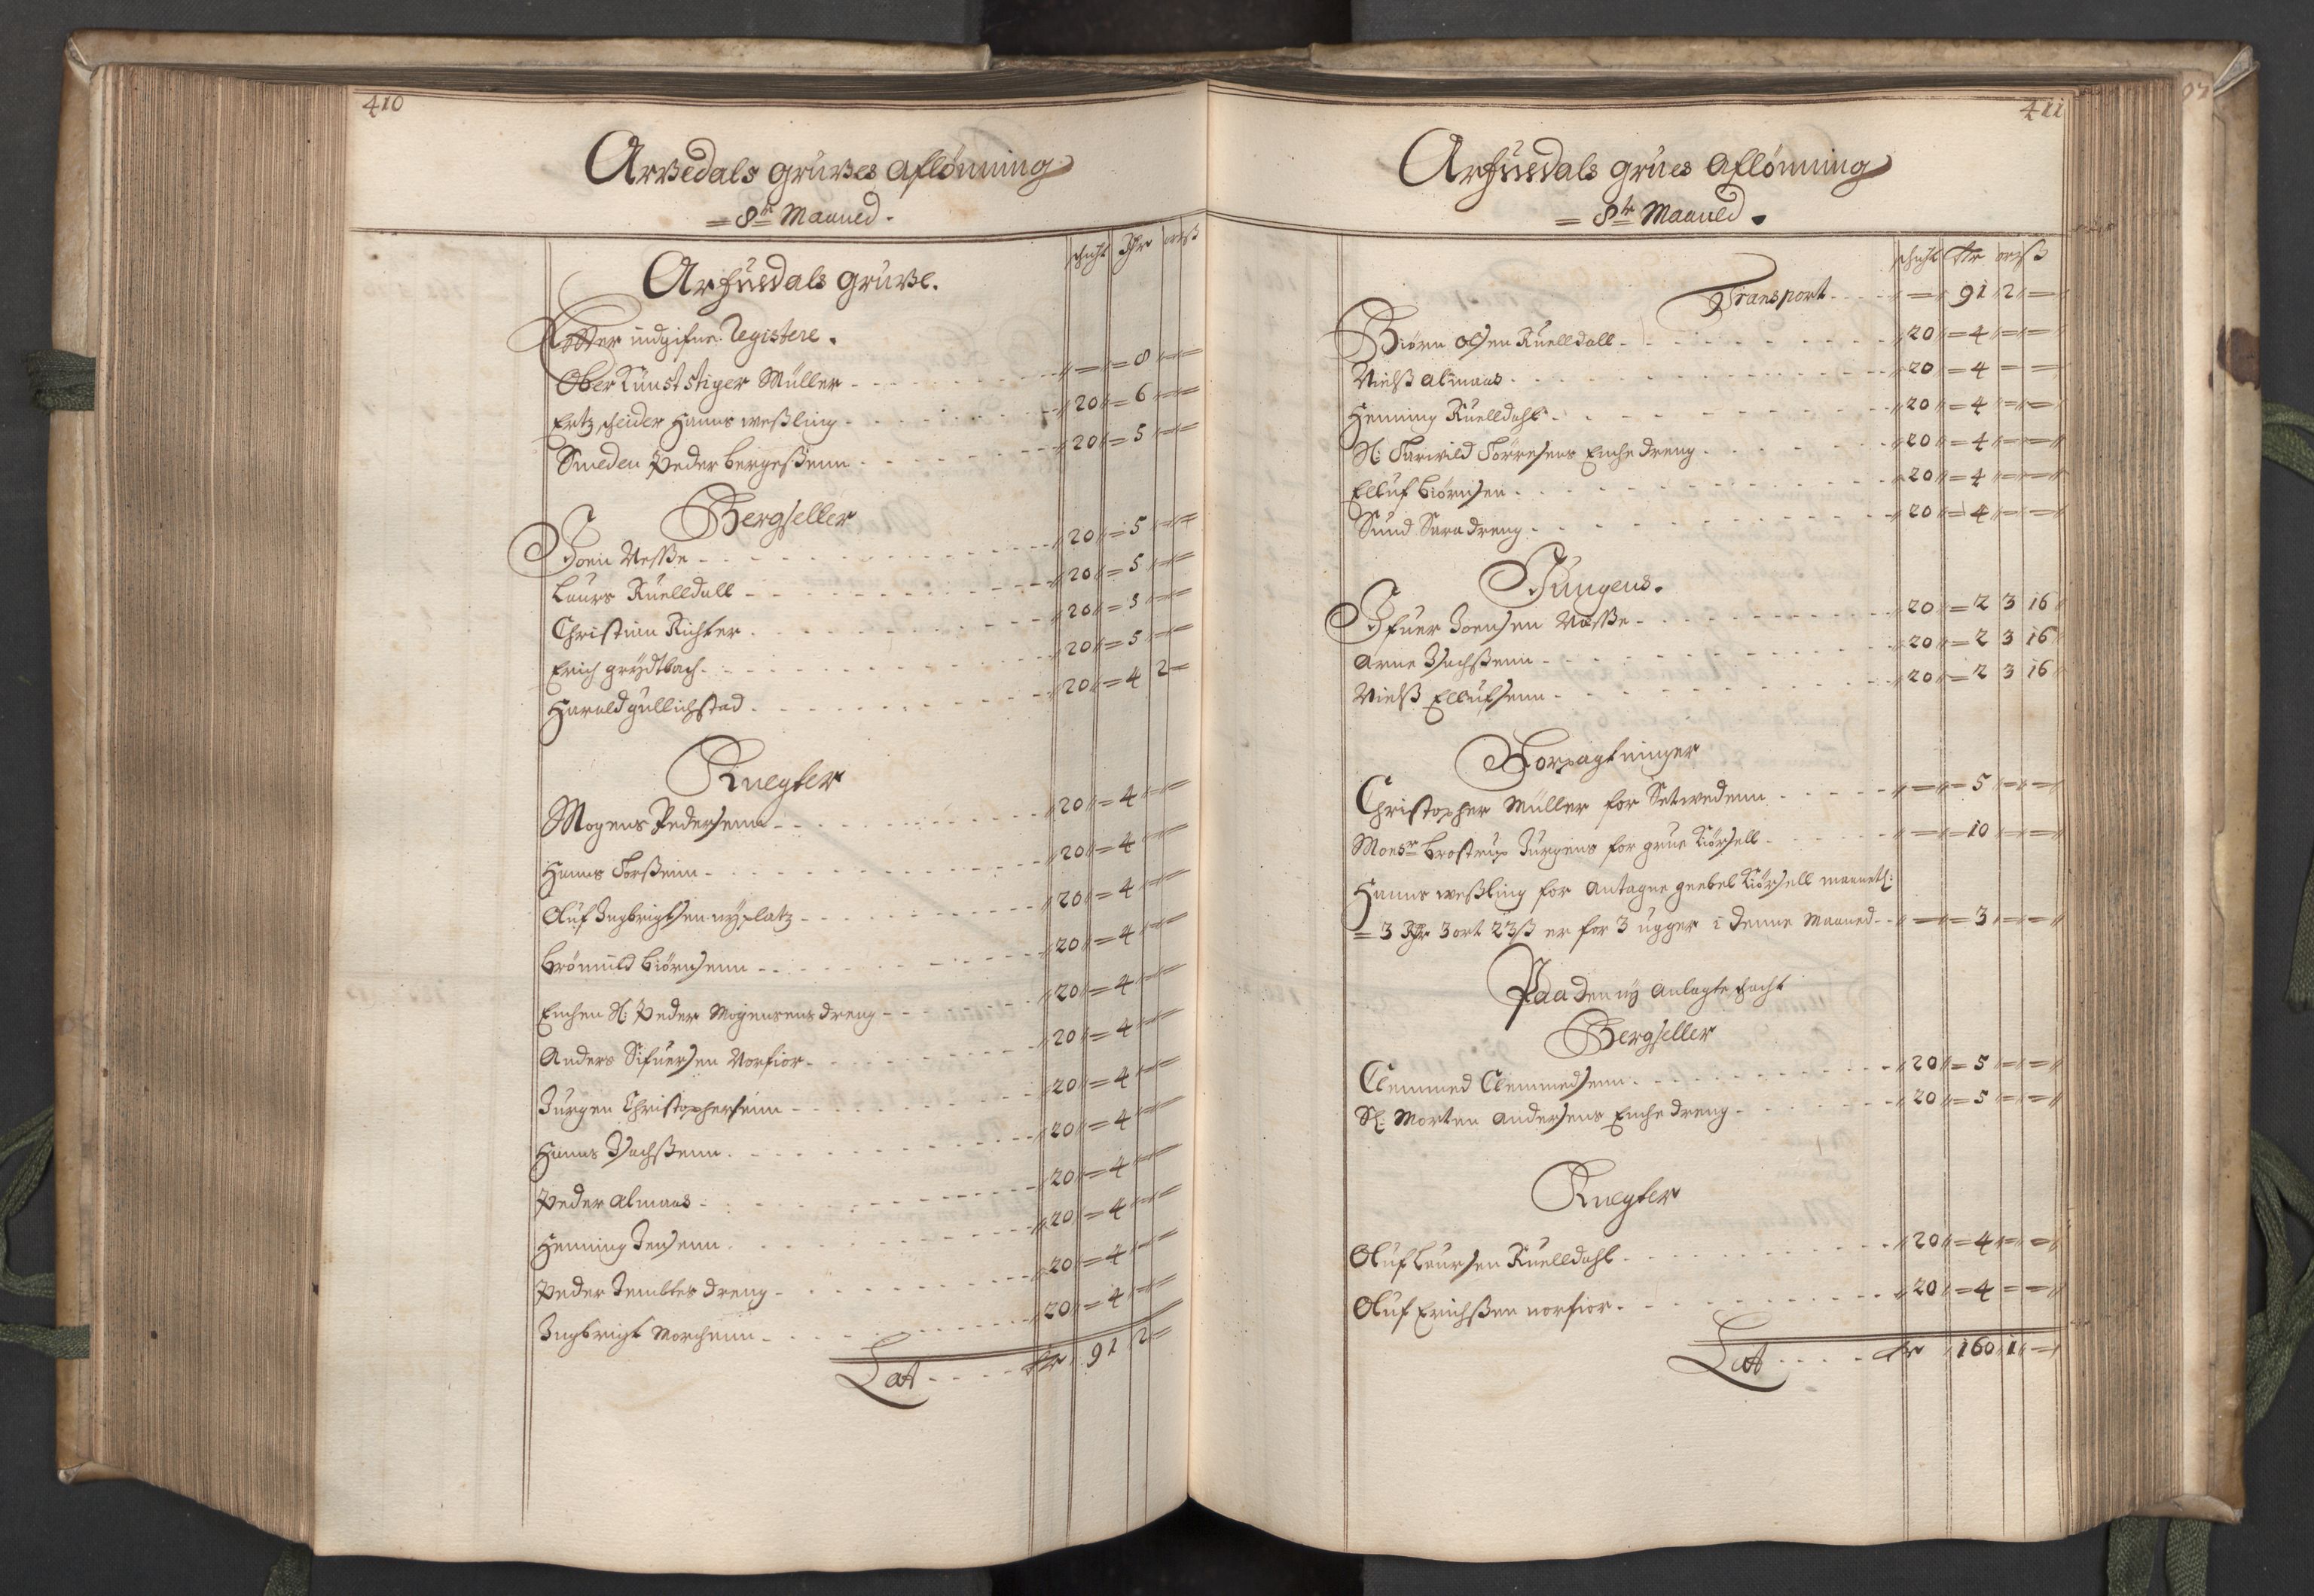 410
Arvedals Gruves Aflønning
= 8de Maaned.
schicht Rdr ort ß
Arfuedals Gruve.
Efter indgifne Registere.
Ober Kunst stiger Müller - - - 〃 = 〃 = 8 〃 = 〃 =
Ertzscheider Hanns Weßling - - - 〃 20 〃 = 6 〃 = 〃 =
Smeden Peder Bergeßenn - - - 〃 20 〃 = 5 〃 = 〃 =
Bergseller
Joen Næsse - - - 〃 20 〃 = 5 〃 = 〃 =
Laurs Ruelldall - - - 〃 20 〃 = 5 〃 = 〃 =
Christian Richter - - - 〃 20 〃 = 5 〃 = 〃 =
Erich Grydtbach - - - 〃 20 〃 = 5 〃 = 〃 =
Harald Gullichstad - - - 〃 20 〃 = 4 2 =
Knegter
Mogens Pedersenn - - - 〃 20 〃 = 4 〃 = 〃 =
Hanns Torßenn - - - 〃 20 〃 = 4 〃 = 〃 =
Oluf Ingbrigtsen nyplatz - - - 〃 20 〃 = 4 〃 = 〃 =
Brönnild Biörnsenn - - - 〃 20 〃 = 4 〃 = 〃 =
Enchen Sl: Peder Mogensens dreng - - - 〃 20 〃 = 4 〃 = 〃 =
Anders Sifuersen Norfior - - - 〃 20 〃 = 4 〃 = 〃 =
Jürgen Christophersenn - - - 〃 20 〃 = 4 〃 = 〃 =
Hanns Isachßenn - - - 〃 20 〃 = 4 〃 = 〃 =
Peder Almaas - - - 〃 20 〃 = 4 〃 = 〃 =
Henning Jensenn - - - 〃 20 〃 = 4 〃 = 〃 =
Peder Jembtes dreng - - - 〃 20 〃 = 4 〃 = 〃 =
Ingbrigt Morchenn - - - 〃 20 〃 = 4 〃 = 〃 =
Lat - - - - Rdr 91 2 =
411
Arfuedals Grues Aflønning
= 8de Maaned.
schicht Rdr ort ß
Transport - - - 〃 = 〃 91 〃 2 〃 =
Biörn Olsen Ruelldall - - - 〃 20 〃 = 4 〃 = 〃 =
Nielß Almaas - - - 〃 20 〃 = 4 = =
Henning Ruelldahl - - - 〃 20 〃 = 4 〃 = 〃 =
Sl: Tarvild Törresens Enche dreng - - - 〃 20 〃 = 4 〃 = 〃 =
Elluf Biörnsen - - - 〃 20 〃 = 4 〃 = 〃 =
Sund Sara dreng - - - 〃 20 〃 = 4 〃 = 〃 =
Jungens.
Ifuer Joensen Næsse - - - 〃 20 〃 = 2 3 16 〃
Arne Isachßenn - - - 〃 20 〃 = 2 3 16 〃
Nielß Ellufsenn - - - 〃 20 〃 = 2 3 16 〃
Forpagtninger
Christopher Müller for Setwedenn - - - 〃 = 〃 = 5 〃 = 〃 =
Monsr Brostrup Jürgens for grue Kiörsell - - - 〃 = 〃 = 10 〃 = 〃 =
Hanns Weßling for Antagne geebel Kiörsell maanetl:
= 3 Rdr 3 ort 23 ß er for 3 ugger i denne Maaned - - 〃 = 〃 = 3 〃 = 〃 =
Paa den ny Anlagte schacht
Bergseller
Clemmed Clemmedsenn - - - 〃 20 〃 = 5 〃 = 〃 =
Sl: Morten Andersens Enche dreng - - - 〃 20 〃 = 5 〃 = 〃 =
Knegter
Oluf Laursen Ruelldahl - - - 〃 20 〃 = 4 〃 = 〃 =
Oluf Erichßen norfior - - - 〃 20 〃 = 4 = =
Lat - - - - Rdr 〃 160 〃 1 〃 =